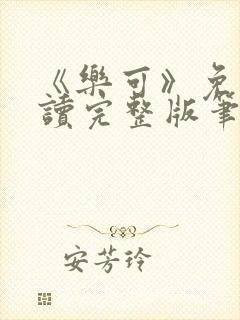 《樂可》免
讀完整版筆
安芳玲